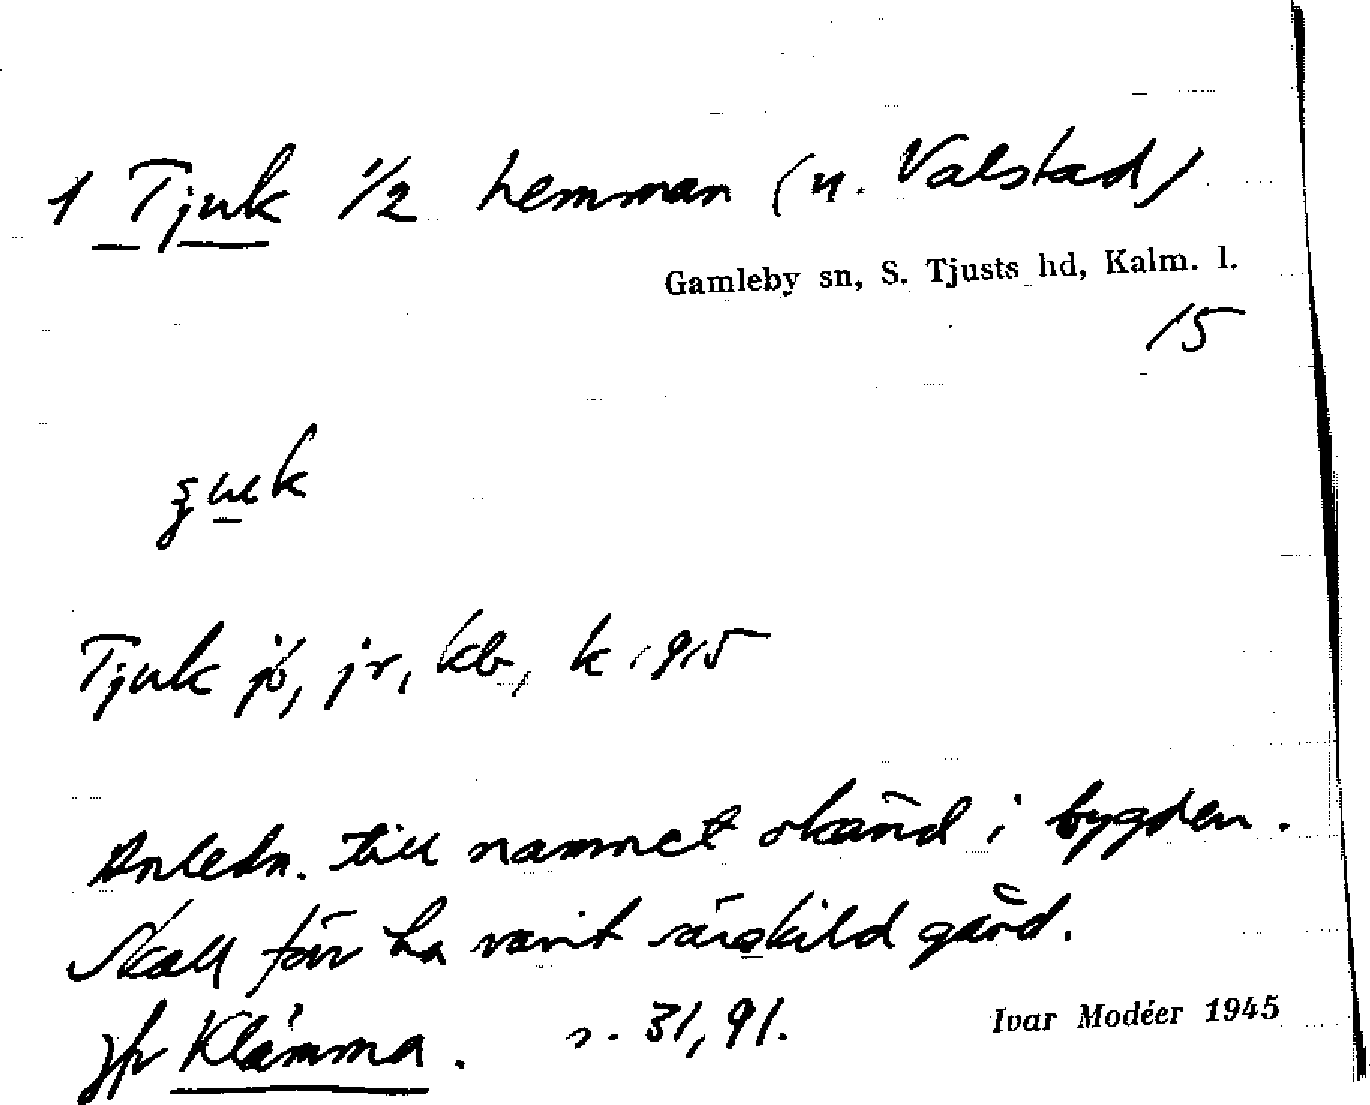 1 Tjuk 1/2 hemman (u. Valstad)
Gamleby sn, S. Tjusts hd, Kalm. l.
15
Tjuk jö, jr, kb, k 1915
Anledn. till namnet okänd i bygden.
Skall förr ha varit särskild gård.
Jfr Klämma. s. 31, 91.
Ivar Modéer 1945